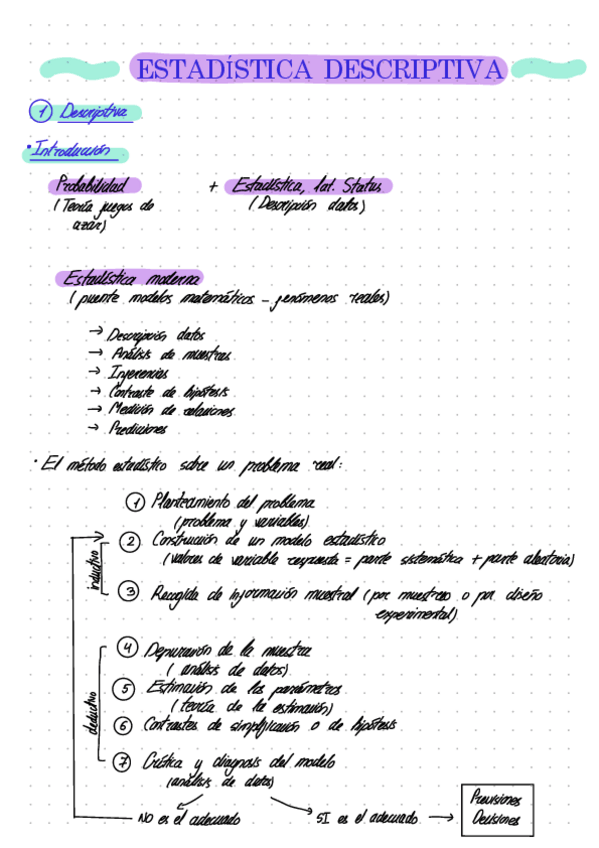 ESTADÍSTICA DESCRIPTIVA
1 Descriptiva
• Introducción
Probabilidad + Estadística, lat. Status
(Teoría juegos de (Descripción datos)
azar)
Estadística moderna
(puente modelos matemáticos – fenómenos reales)
→ Descripción datos
→ Análisis de muestras
→ Inferencias
→ Contraste de hipótesis
→ Medición de relaciones
→ Predicciones
• El método estadístico sobre un problema real:
1 Planteamiento del problema
(problema y variables)
2 Construcción de un modelo estadístico
(valores de variable respuesta = parte sistemática + parte aleatoria)
inductivo
3 Recogida de información muestral (por muestreo o por diseño
experimental)
4 Depuración de la muestra
(análisis de datos)
5 Estimación de los parámetros
(teoría de la estimación)
deductivo
6 Contrastes de simplificación o de hipótesis
7 Crítica y diagnosis del modelo
(análisis de datos)
NO es el adecuado SI es el adecuado → Previsiones
Decisiones